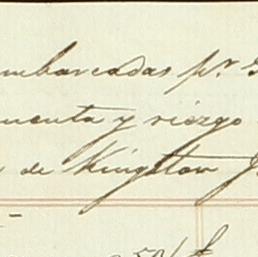 embarcadas pr.
cuenta y riezgo
de Kingston